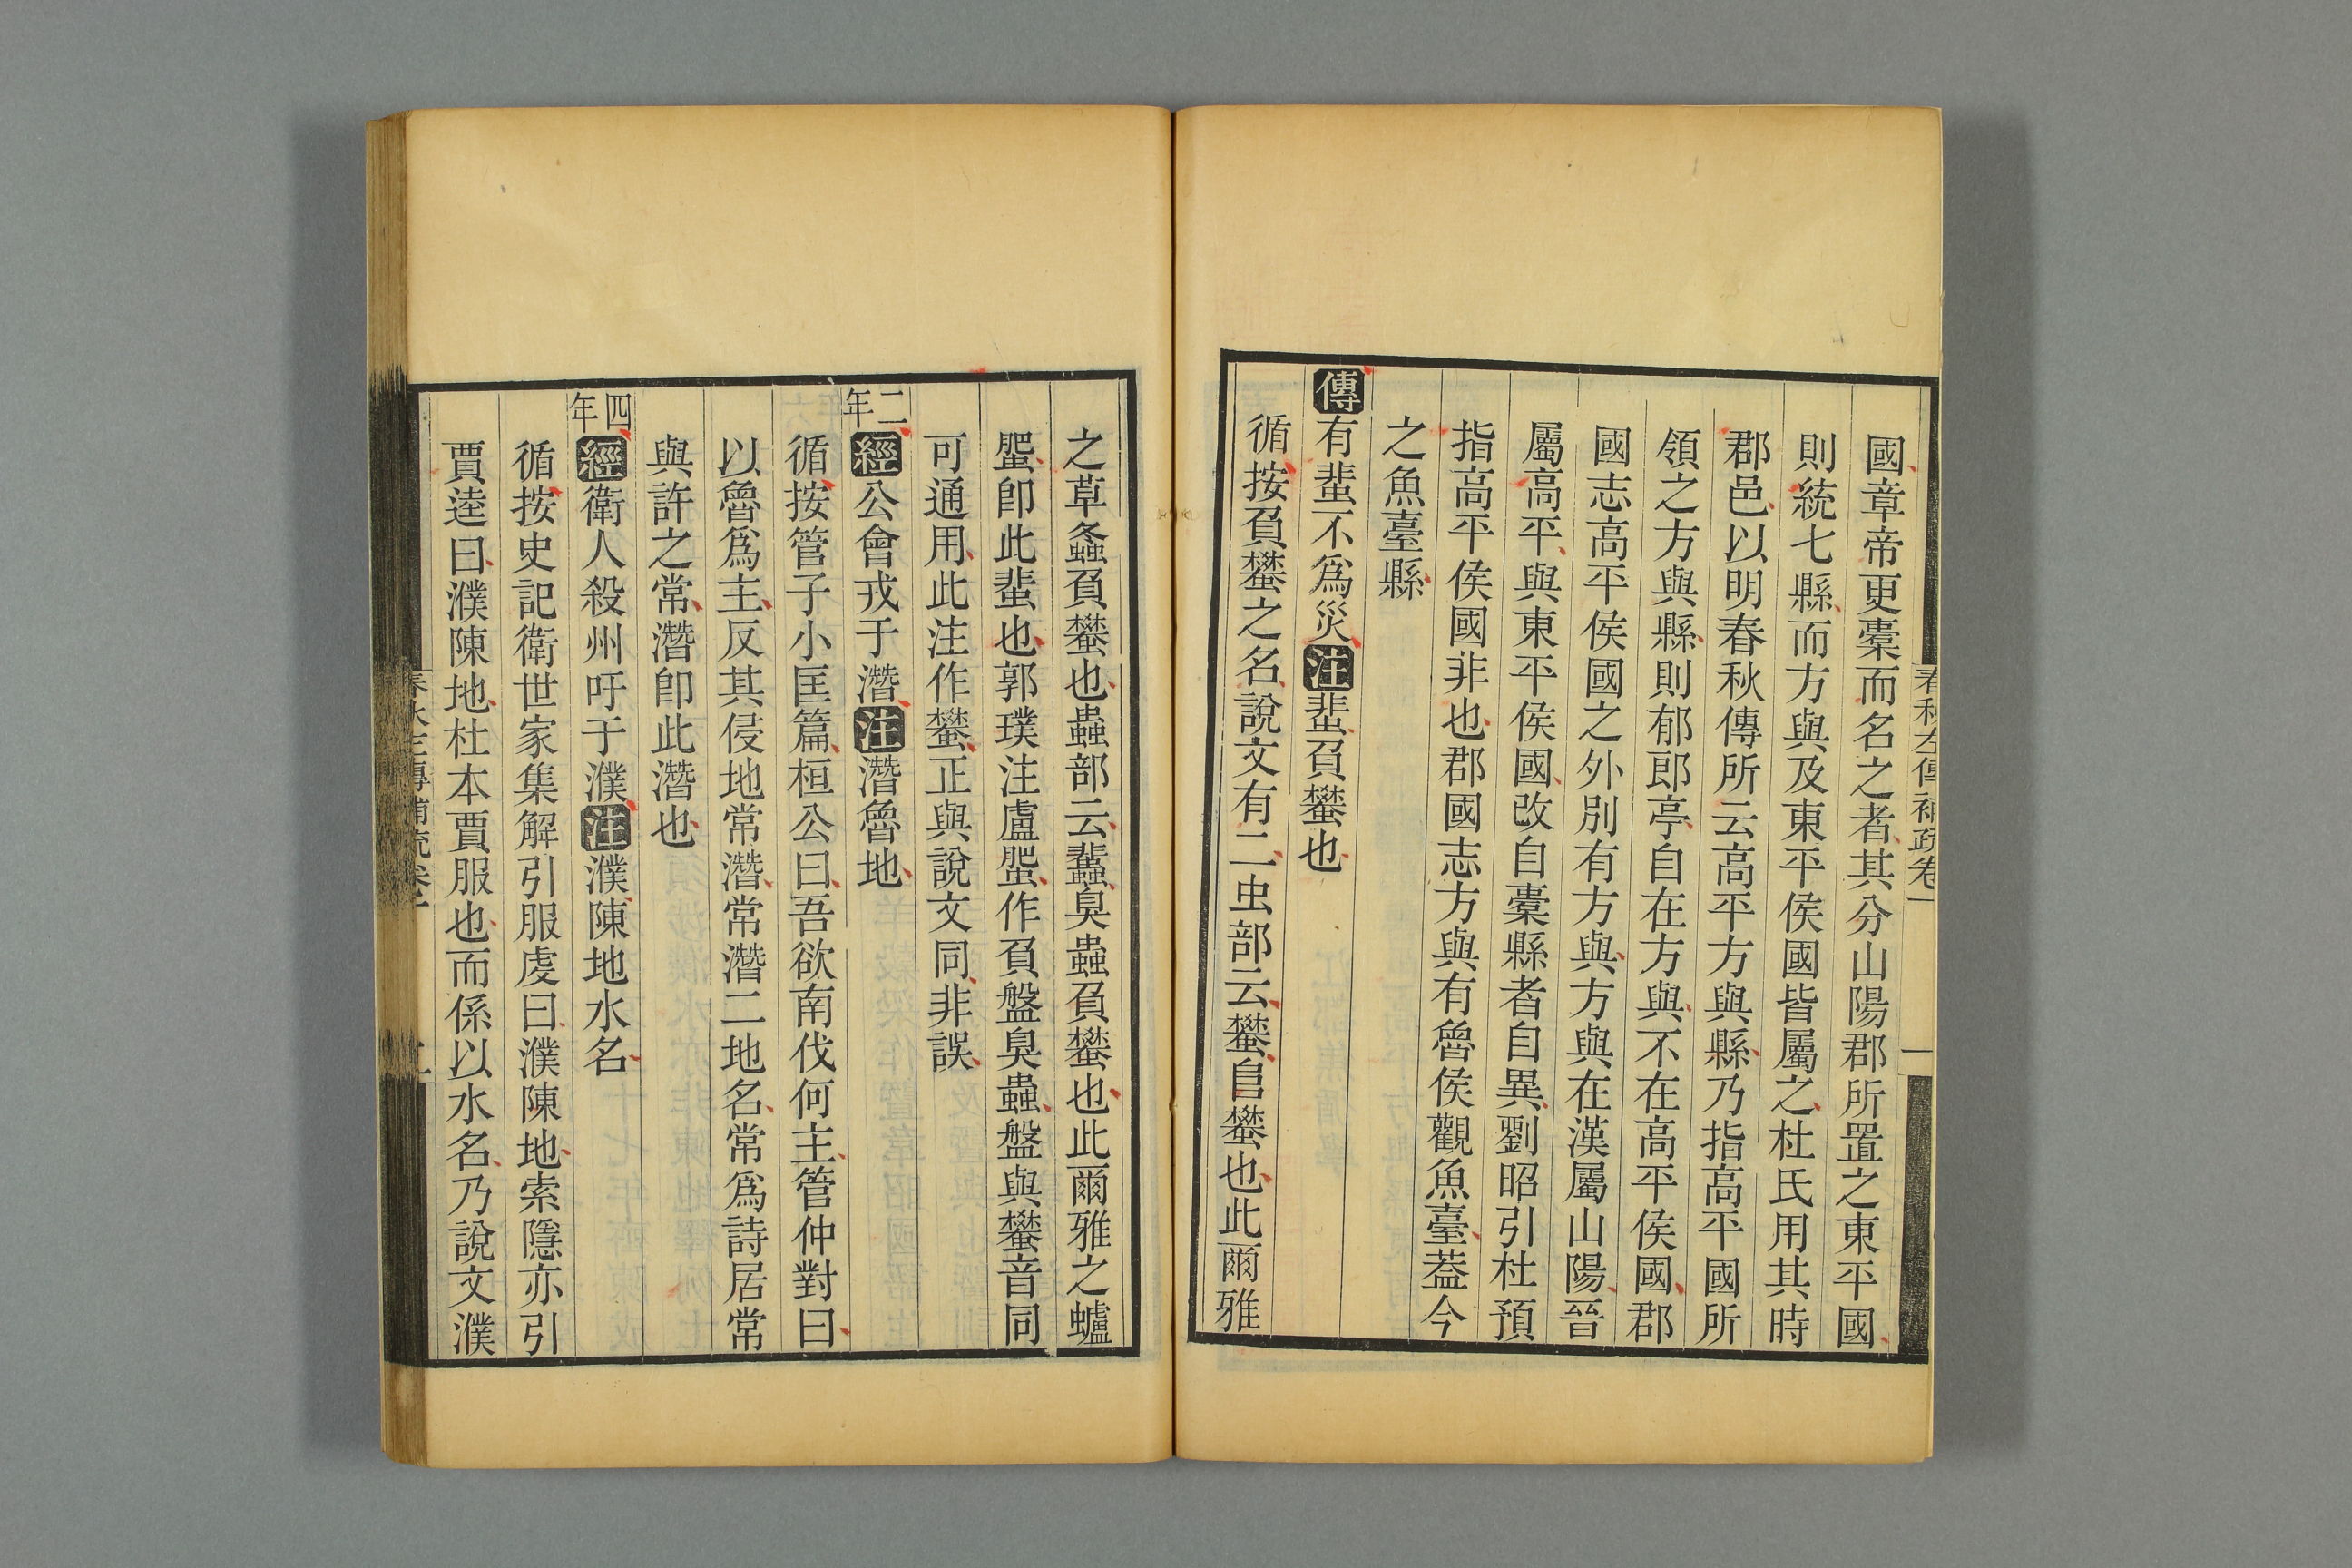 春秋左傳補疏卷一
一
國章帝更橐而名之者其分山陽郡所置之東平國
則統七縣而方與及東平侯國皆屬之杜氏用其時
郡邑以明春秋傳所云高平方與縣乃指高平國所
領之方與縣則郁郎亭自在方與不在高平侯國郡
國志高平侯國之外別有方與方與在漢屬山陽晉
屬高平與東平侯國改自橐縣者自異劉昭引杜預
指高平侯國非也郡國志方與有魯侯觀魚臺葢今
之魚臺縣
傳有蜚不爲災注蜚負蠜也
循按負蠜之名說文有二虫部云蠜𨸏蠜也此爾雅
之草螽負蠜也蟲部云蠹臭蟲負蠜也此爾雅之蠦
蜰卽此蜚也郭璞注盧蜰作負盤臭蟲盤與蠜音同
可通用此注作蠜正與說文同非誤
二年經公會戎于潛注潛魯地
循按管子小匡篇桓公曰吾欲南伐何主管仲對曰
以魯爲主反其侵地常潛常潛二地名常爲詩居常
與許之常潛卽此潛也
四年經衛人殺州吁于濮注濮陳地水名
循按史記衛世家集解引服虔曰濮陳地索隱亦引
賈逵曰濮陳地杜本賈服也而係以水名乃說文濮